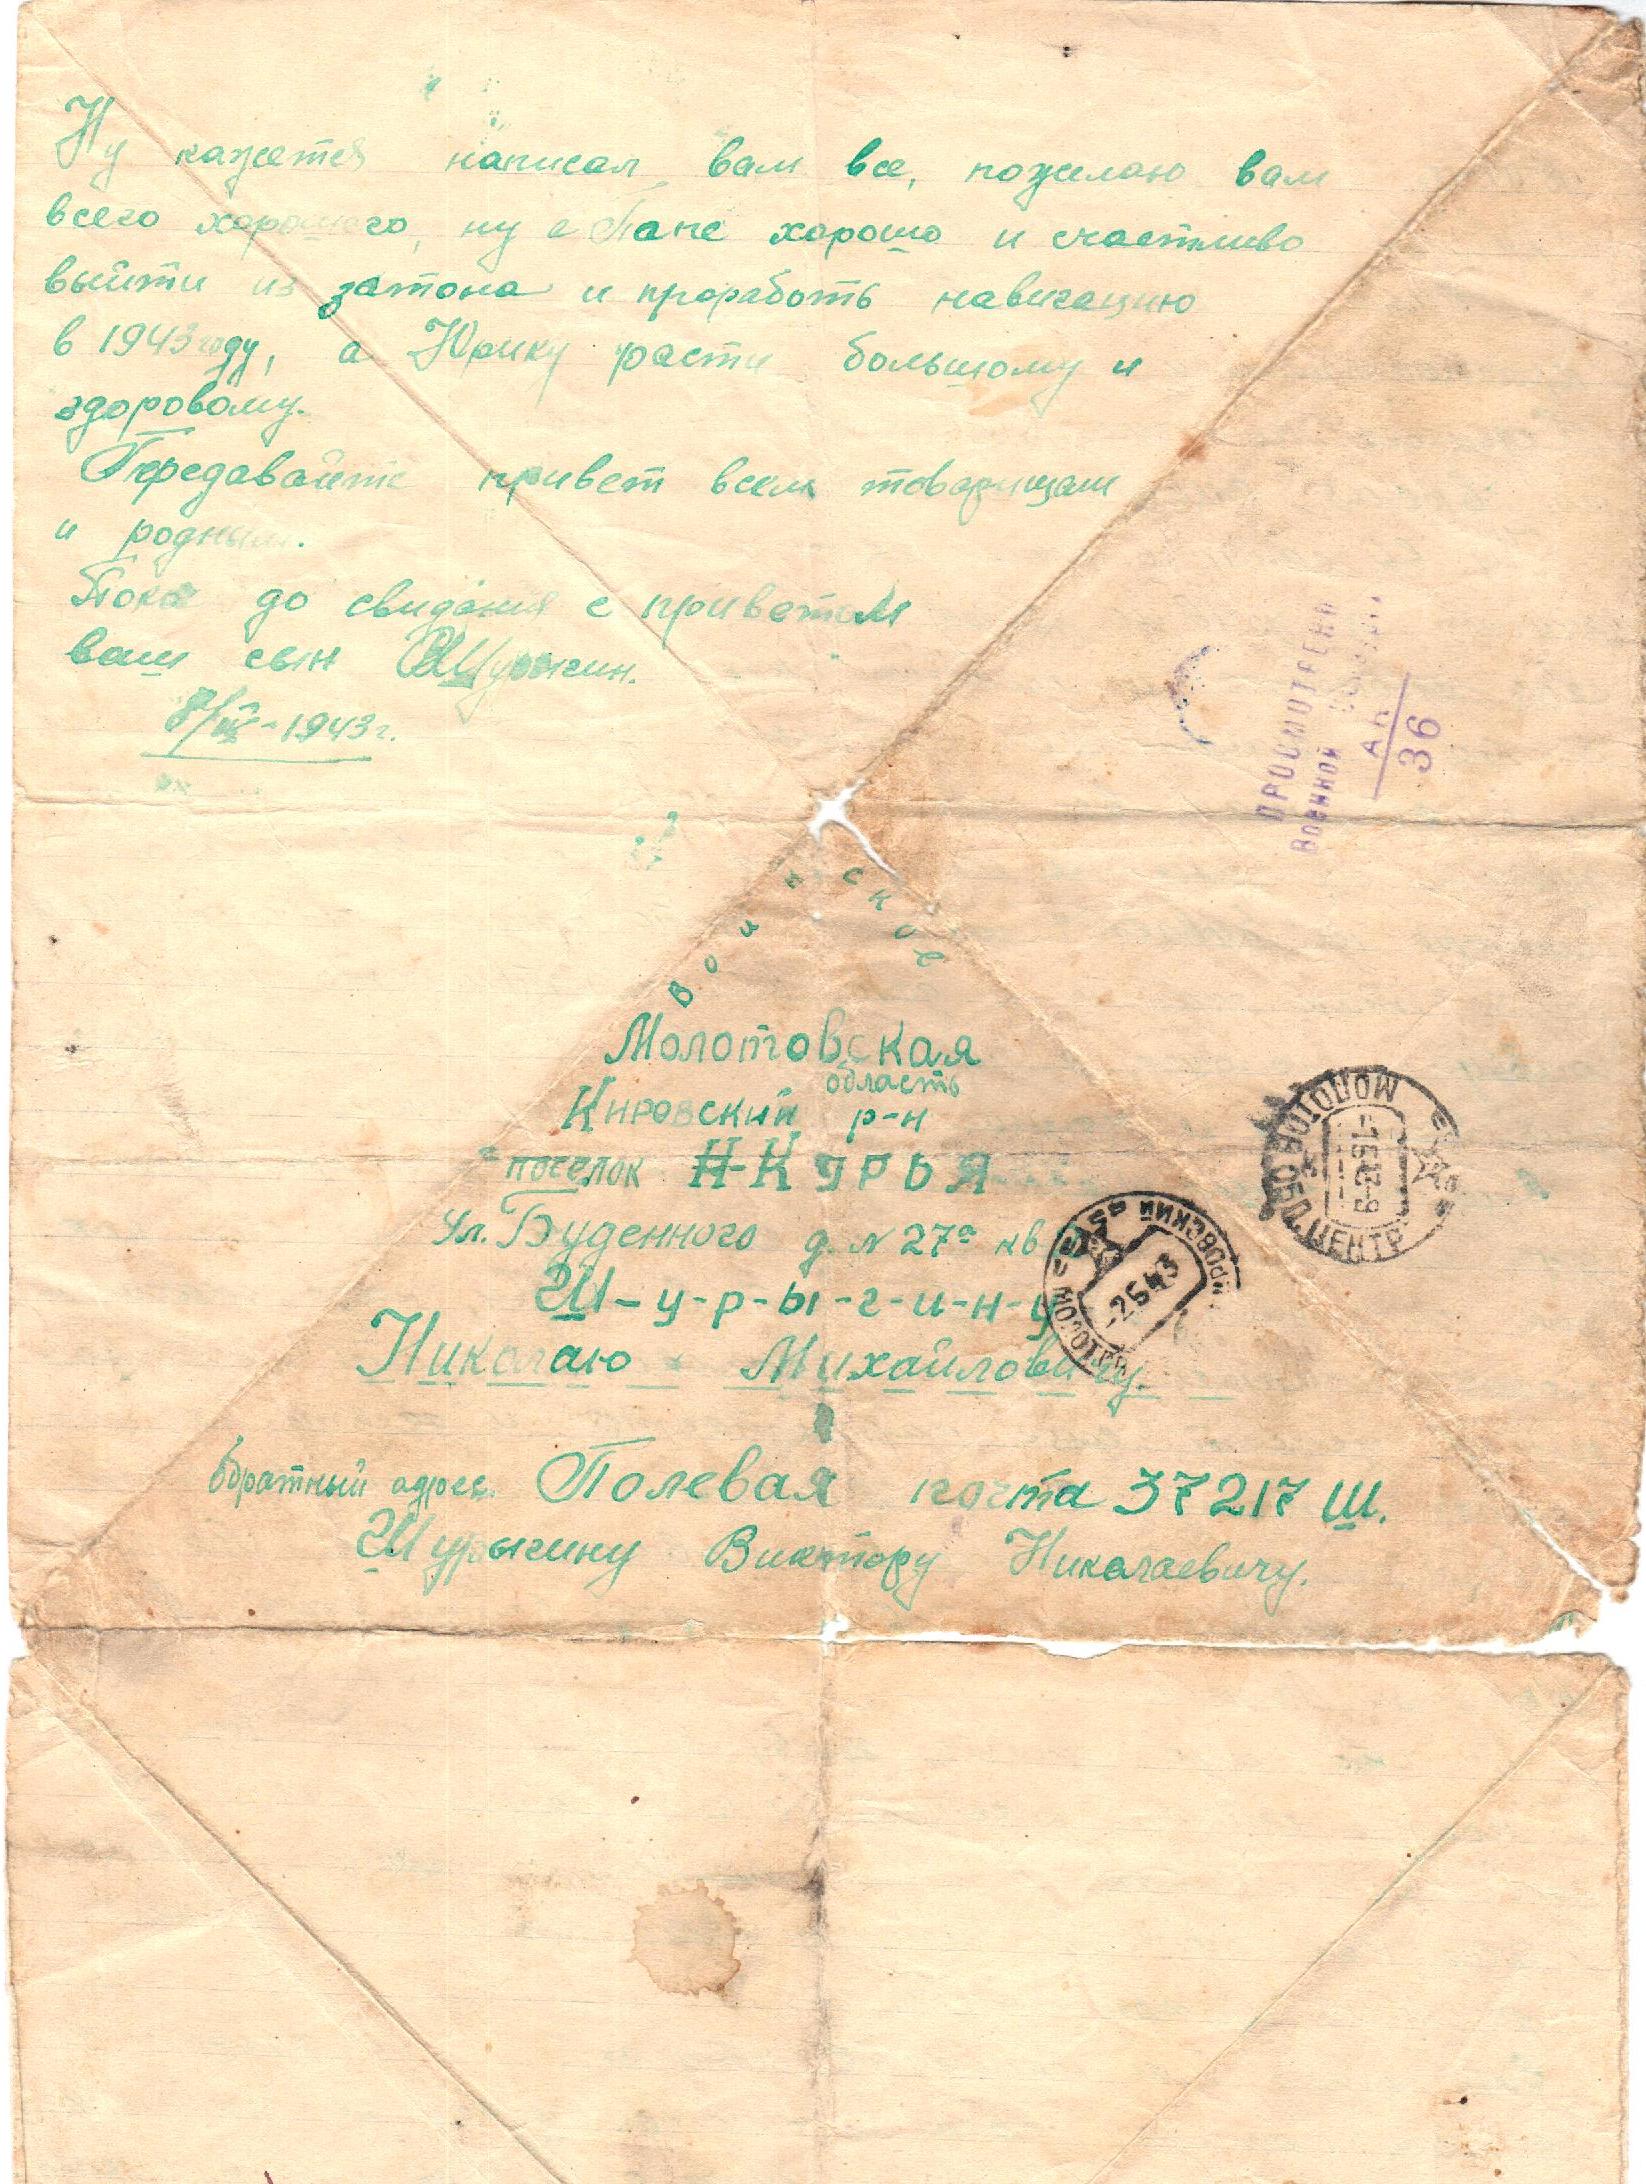 Ну кажется написал вам все, пожелаю вам
всего хорошего, ну а Папе хорошо и счастливо
выйти из затона и проработь навигацию
в 1943 году, а Юрику расти большому и
здоровому.
Передавайте привет всем товарищам
и родным.
Пока до свидания с приветом
ваш сын Шурыгин.
1943 г.
ПРОСМОТРЕНО
Военной
36
Воинское
Молотовская
область
Кировский р-н
поселок Н-КУРЬЯ
Ул. Буденного д. № 27а кв
Ш-у-р-ы-г-и-н-у
Николаю Михайловичу.
МОЛОТОВ ОБЛ. ЦЕНТР
-2 5 43
Обратный адрес. Полевая почта 37217 Ш.
Шурыгину Виктору Николаевичу.